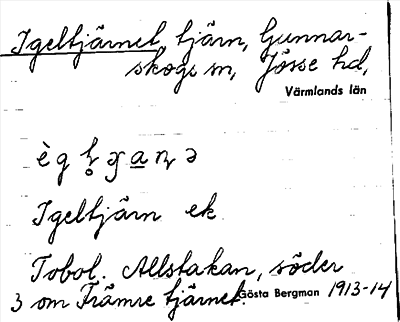 Igeltjärnet, tjärn, Gunnar-
skogs sn, Jösse hd,
Värmlands län
Igeltjärn ek
Tobol. Allstakan, söder
3 om Främre tjärnet. Gösta Bergman 1913-14